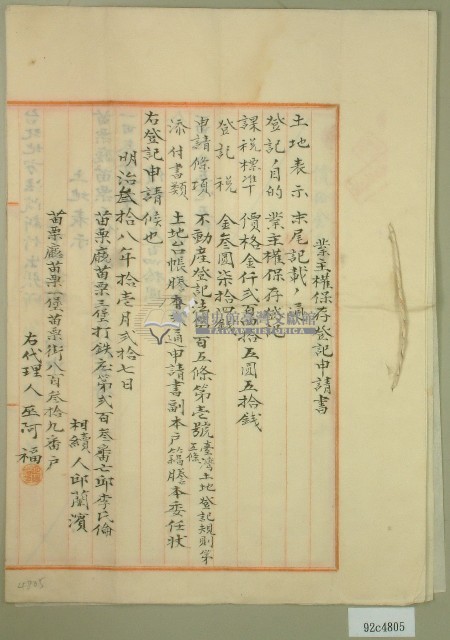 業主權保存登記申請書
土地表示 末尾記載ノ通
登記ノ目的 業主權保存登記
課稅標準 價格金仟弍百拾五圓五拾錢
登記稅 金叁圓柒拾
申請條項 不動產登記法第百五條第壱號臺灣土地登記規則第五條
添付書類 土地台帳謄本 申請書副本戶籍謄本委任狀
右登記申請候也
明治叁拾八年拾壱月弍拾七日
苗栗廳苗栗三堡打鉄庄第弍百叁番亡邱李氏倫
相續人邱蘭濱
苗栗廳苗栗一堡苗栗街八百叁拾九番戶
右代理人巫阿福
國史館臺灣文獻館
TAIWAN HISTORICA
4805
92c4805